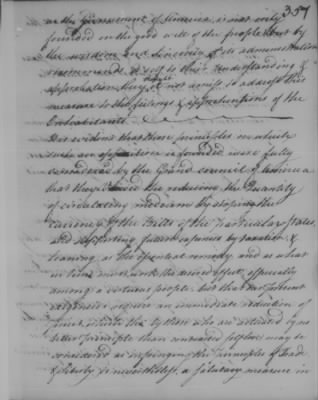 357
in the government of America, is not only
founded on the good will of the people but by
the wisdom and sincerity of its administration
recommends itself to their understanding &
approbation they do not
measure to the feelings & apprehensions of the
Inhabitants
It is evident that those principles on which
such an opposition is founded were fully
considered by the Grand council of America
that they the reducing the Quantity
of circulating medium by stoping the
currency of the Bills of the particular States,
and supporting future expences by taxation &
loaning as the effectual remedy and as what
in time must work the desired effect, especially
among a virtuous people. but that our present
exigencies require an immediate reduction of
prices, which tho by those who are actuated by no
better principle than contracted selfishness, may be
considered as infringing the principles of trade
& liberty is nevertheless, a salutary measure in